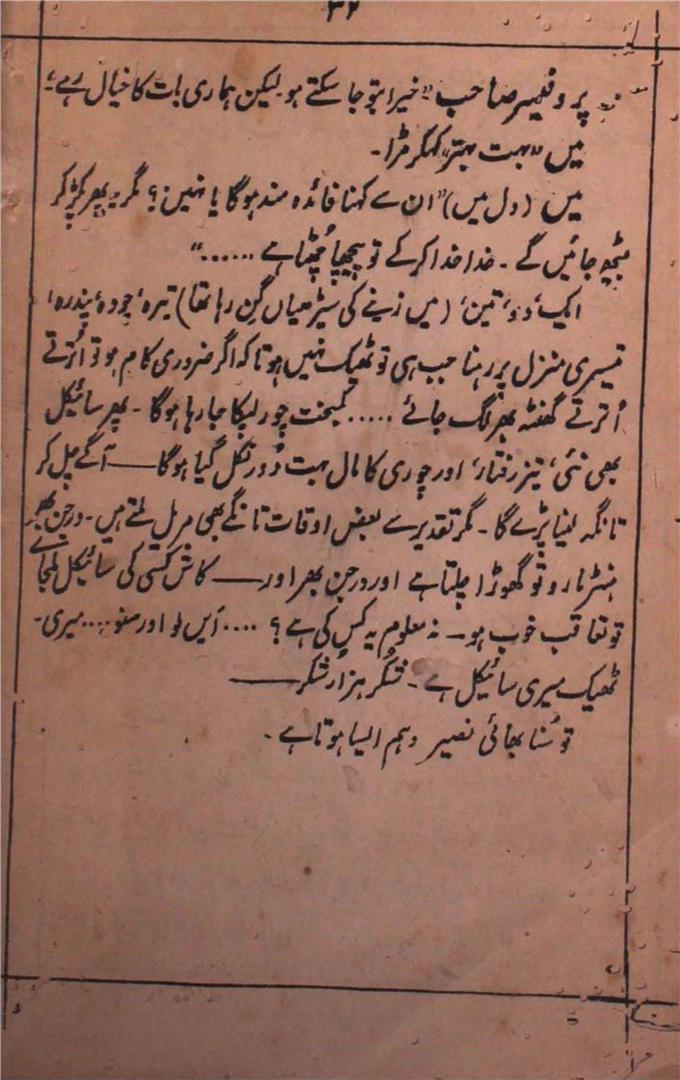 ۳۲
پروفیسر صاحب "خیر اب تو جا سکتے ہو۔ لیکن ہماری بات کا خیال رہے"
میں "بہت بہتر" کہکر مڑا۔
میں (دل میں) "ان سے کہنا فائدہ مند ہوگا یا نہیں؟ مگر یہ پھر پکڑ کر
بیٹھ جائیں گے۔ خدا خدا کر کے تو پیچھا چھٹا ہے ......"
ایک، دو، تین، (میں زینے کی سیڑھیاں گن رہا تھا) تیرہ، چودہ، پندرہ،
تیسری منزل پر رہنا جب ہی تو ٹھیک نہیں ہوتا کہ اگر ضروری کام ہو تو اُترتے
اُترتے گھنٹہ بھر لگ جائے ..... کمبخت چور لپکا جا رہا ہوگا۔ پھر سائیکل
بھی نئی، تیز رفتار، اور چوری کا مال بہت دُور نکل گیا ہوگا — آگے چل کر
تانگہ لینا پڑے گا۔ مگر تقدیر سے بعض اوقات تانگے بھی مریل ملتے ہیں۔ درجن بھر
ہنٹر مارو تو گھوڑا چلتا ہے اور درجن بھر اور — کاش کسی کی سائیکل ملجائے
تو تعاقب خوب ہو۔ نہ معلوم یہ کس کی ہے؟ .... ایں لو اور سنو .... میری۔
ٹھیک میری سائیکل ہے۔ شکر ہزار شکر —
تو سُنا بھائی نصیر وہم ایسا ہوتا ہے۔